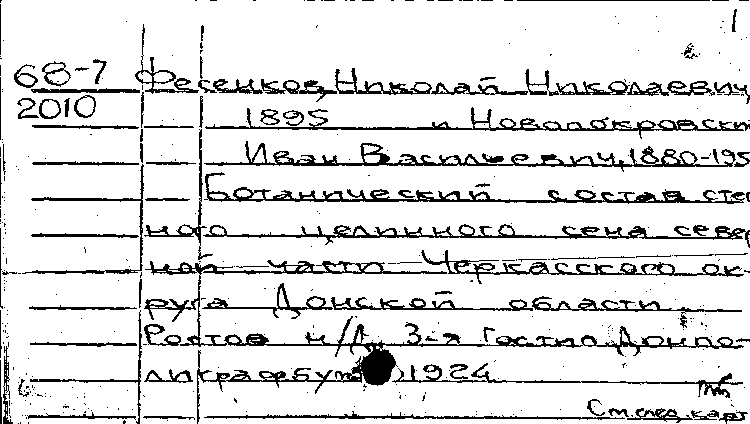 1
68-7 Фесенков, Николай Николаевич,
2010 1895 и Новопокровски
Иван Васильевич, 1880-195
Ботанический состав степ
ного целинного сена север
ной части Черкасского ок-
руга Донской области
Ростов н/Д, 3-я Гостип. Донпо-
лиграфбум 1924
См. след. карт